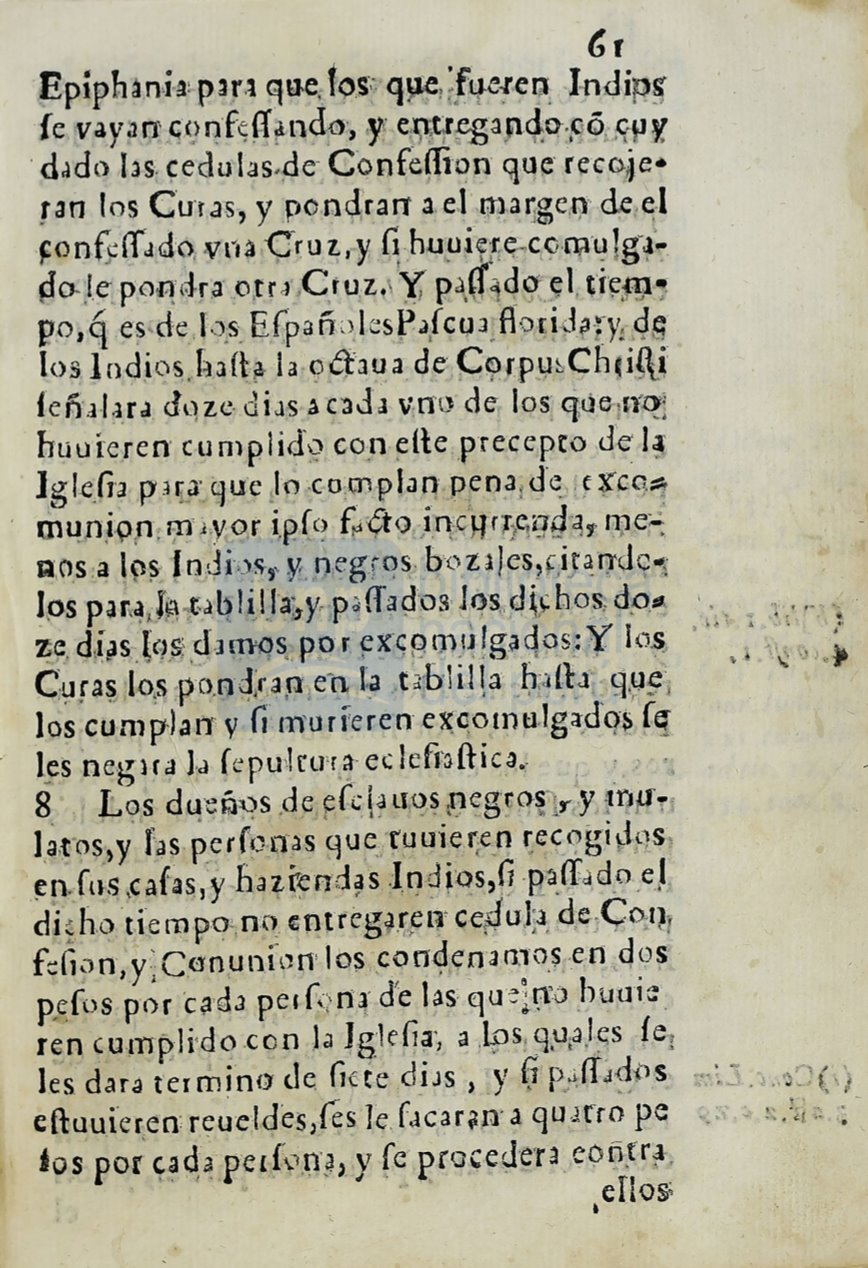 61
Epiphania para que los que fueren Indios
ſe vayan confeſſando, y entregando cõ cuy
dado las cedulas de Confeſſion que recoje-
ran los Curas, y pondran a el margen de el
confeſſado vna Cruz, y ſi huuiere comulga-
do le pondra otra Cruz. Y paſſado el tiem-
po, q́ es de los Eſpañoles Paſcua florida: y de
los Indios haſta la octaua de Corpus Chriſti
ſeñalara doze dias a cada vno de los que no
huuieren cumplido con eſte precepto de la
Igleſia para que lo complan pena de exco-
munion mayor ipſo facto incurrenda, me-
nos a los Indios, y negros bozales, citando-
los para la tablilla, y paſſados los dichos do-
ze dias los damos por excomulgados: Y los
Curas los pondran en la tablilla haſta que
los cumplan y ſi murieren excomulgados ſe
les negara la ſepultura ecleſiaſtica.
8 Los dueños de eſclauos negros, y mu-
latos, y las perſonas que tuuieren recogidos
en ſus caſas, y haziendas Indios, ſi paſſado el
dicho tiempo no entregaren cedula de Con
feſion, y Conunion los condenamos en dos
peſos por cada perſona de las que no huuie
ren cumplido con la Igleſia, a los quales ſe
les dara termino de ſiete dias, y ſi paſſados
eſtuuieren reueldes, ſes le ſacaran a quatro pe
ſos por cada perſona, y ſe procedera contra
ellos